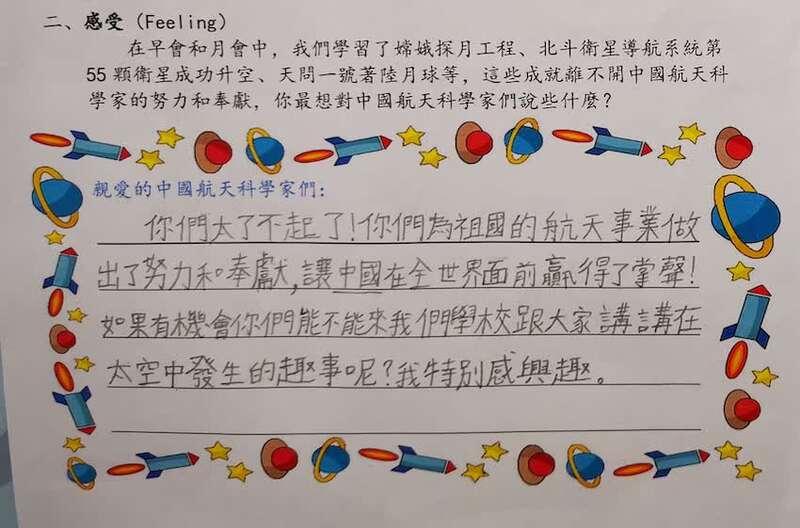 二、感受（Feeling）
在早會和月會中，我們學習了嫦娥探月工程、北斗衛星導航系統第
55 顆衛星成功升空、天問一號著陸月球等，這些成就離不開中國航天科
學家的努力和奉獻，你最想對中國航天科學家們說些什麼？
親愛的中國航天科學家們：
你們太了不起了！你們為祖國的航天事業做
出了努力和奉獻，讓中國在全世界面前贏得了掌聲！
如果有機會你們能不能來我們學校跟大家講講在
太空中發生的趣事呢？我特別感興趣。